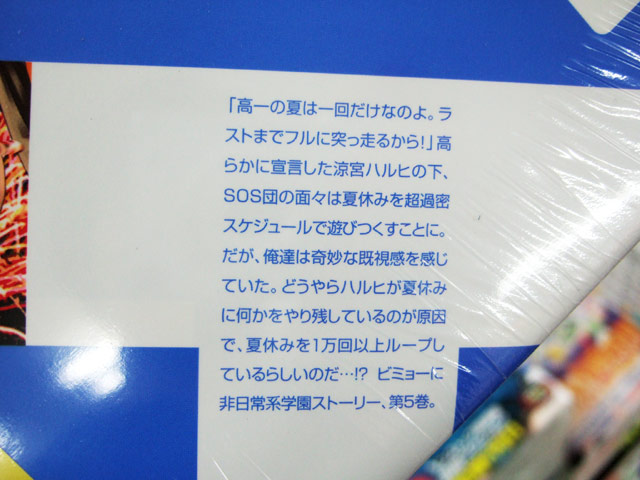 「高一の夏は一回だけなのよ。ラ
ストまでフルに突っ走るから!」高
らかに宣言した涼宮ハルヒの下、
SOS団の面々は夏休みを超過密
スケジュールで遊びつくすことに。
だが、俺達は奇妙な既視感を感じ
ていた。どうやらハルヒが夏休み
に何かをやり残しているのが原因
で、夏休みを1万回以上ループし
ているらしいのだ…!? ビミョーに
非日常系学園ストーリー、第5巻。